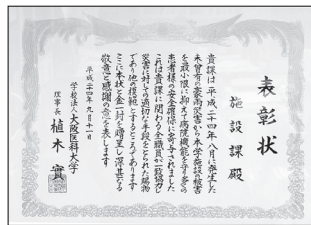 表彰状
施設課殿
貴課は平成二十四年八月に発生した
未曾有の豪雨災害から本学施設の被害
を最小限に抑えて病院機能を守り多くの
患者様の安全確保に寄与されました
これは貴課に関わる全職員が一致協力し
災害に対しての適切な手段をとられた賜物
であり他の模範とするところであります
ここに本状と金一封を贈呈し深甚なる
敬意と感謝の意を表します
平成二十四年九月十一日
学校法人大阪医科大学
理事長 植木實